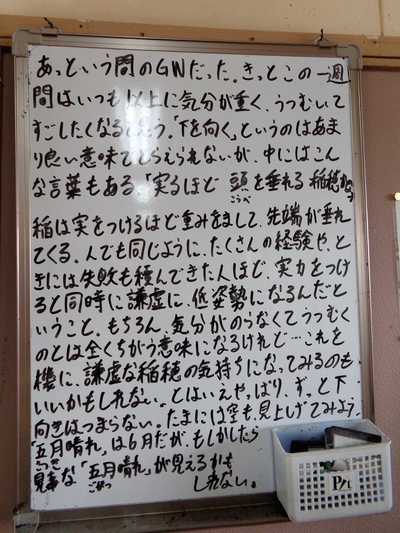 あっという間のGWだった。きっとこの一週
間はいつも以上に気分が重く、うつむいて
すごしたくなると思う。「下を向く」というのはあま
り良い意味でとらえられないが、中にはこん
な言葉もある。「実るほど 頭を垂れる 稲穂かな」
こうべ
稲は実をつけるほど重みをまして、先端が垂れ
てくる。人でも同じように、たくさんの経験や、と
きには失敗も積んできた人ほど、実力をつけ
ると同時に謙虚に、低姿勢になるんだと
いうこと。もちろん、気分がのらなくてうつむく
のとは全くちがう意味になるけれど…これを
機に、謙虚な稲穂の気持ちになってみるのも
いいかもしれない。とはいえやっぱり、ずっと下
向きはつまらない。たまには空も見上げてみよう。
「五月晴れ」は6月だが、もしかしたら
さつき
見事な「五月晴れ」が見えるかも
ごがつ
しれない。